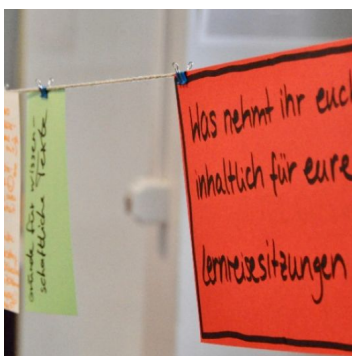 Gründe für wissen-
schaftliche Texte
Was nehmt ihr euch
inhaltlich für eure
Lernreisesitzungen